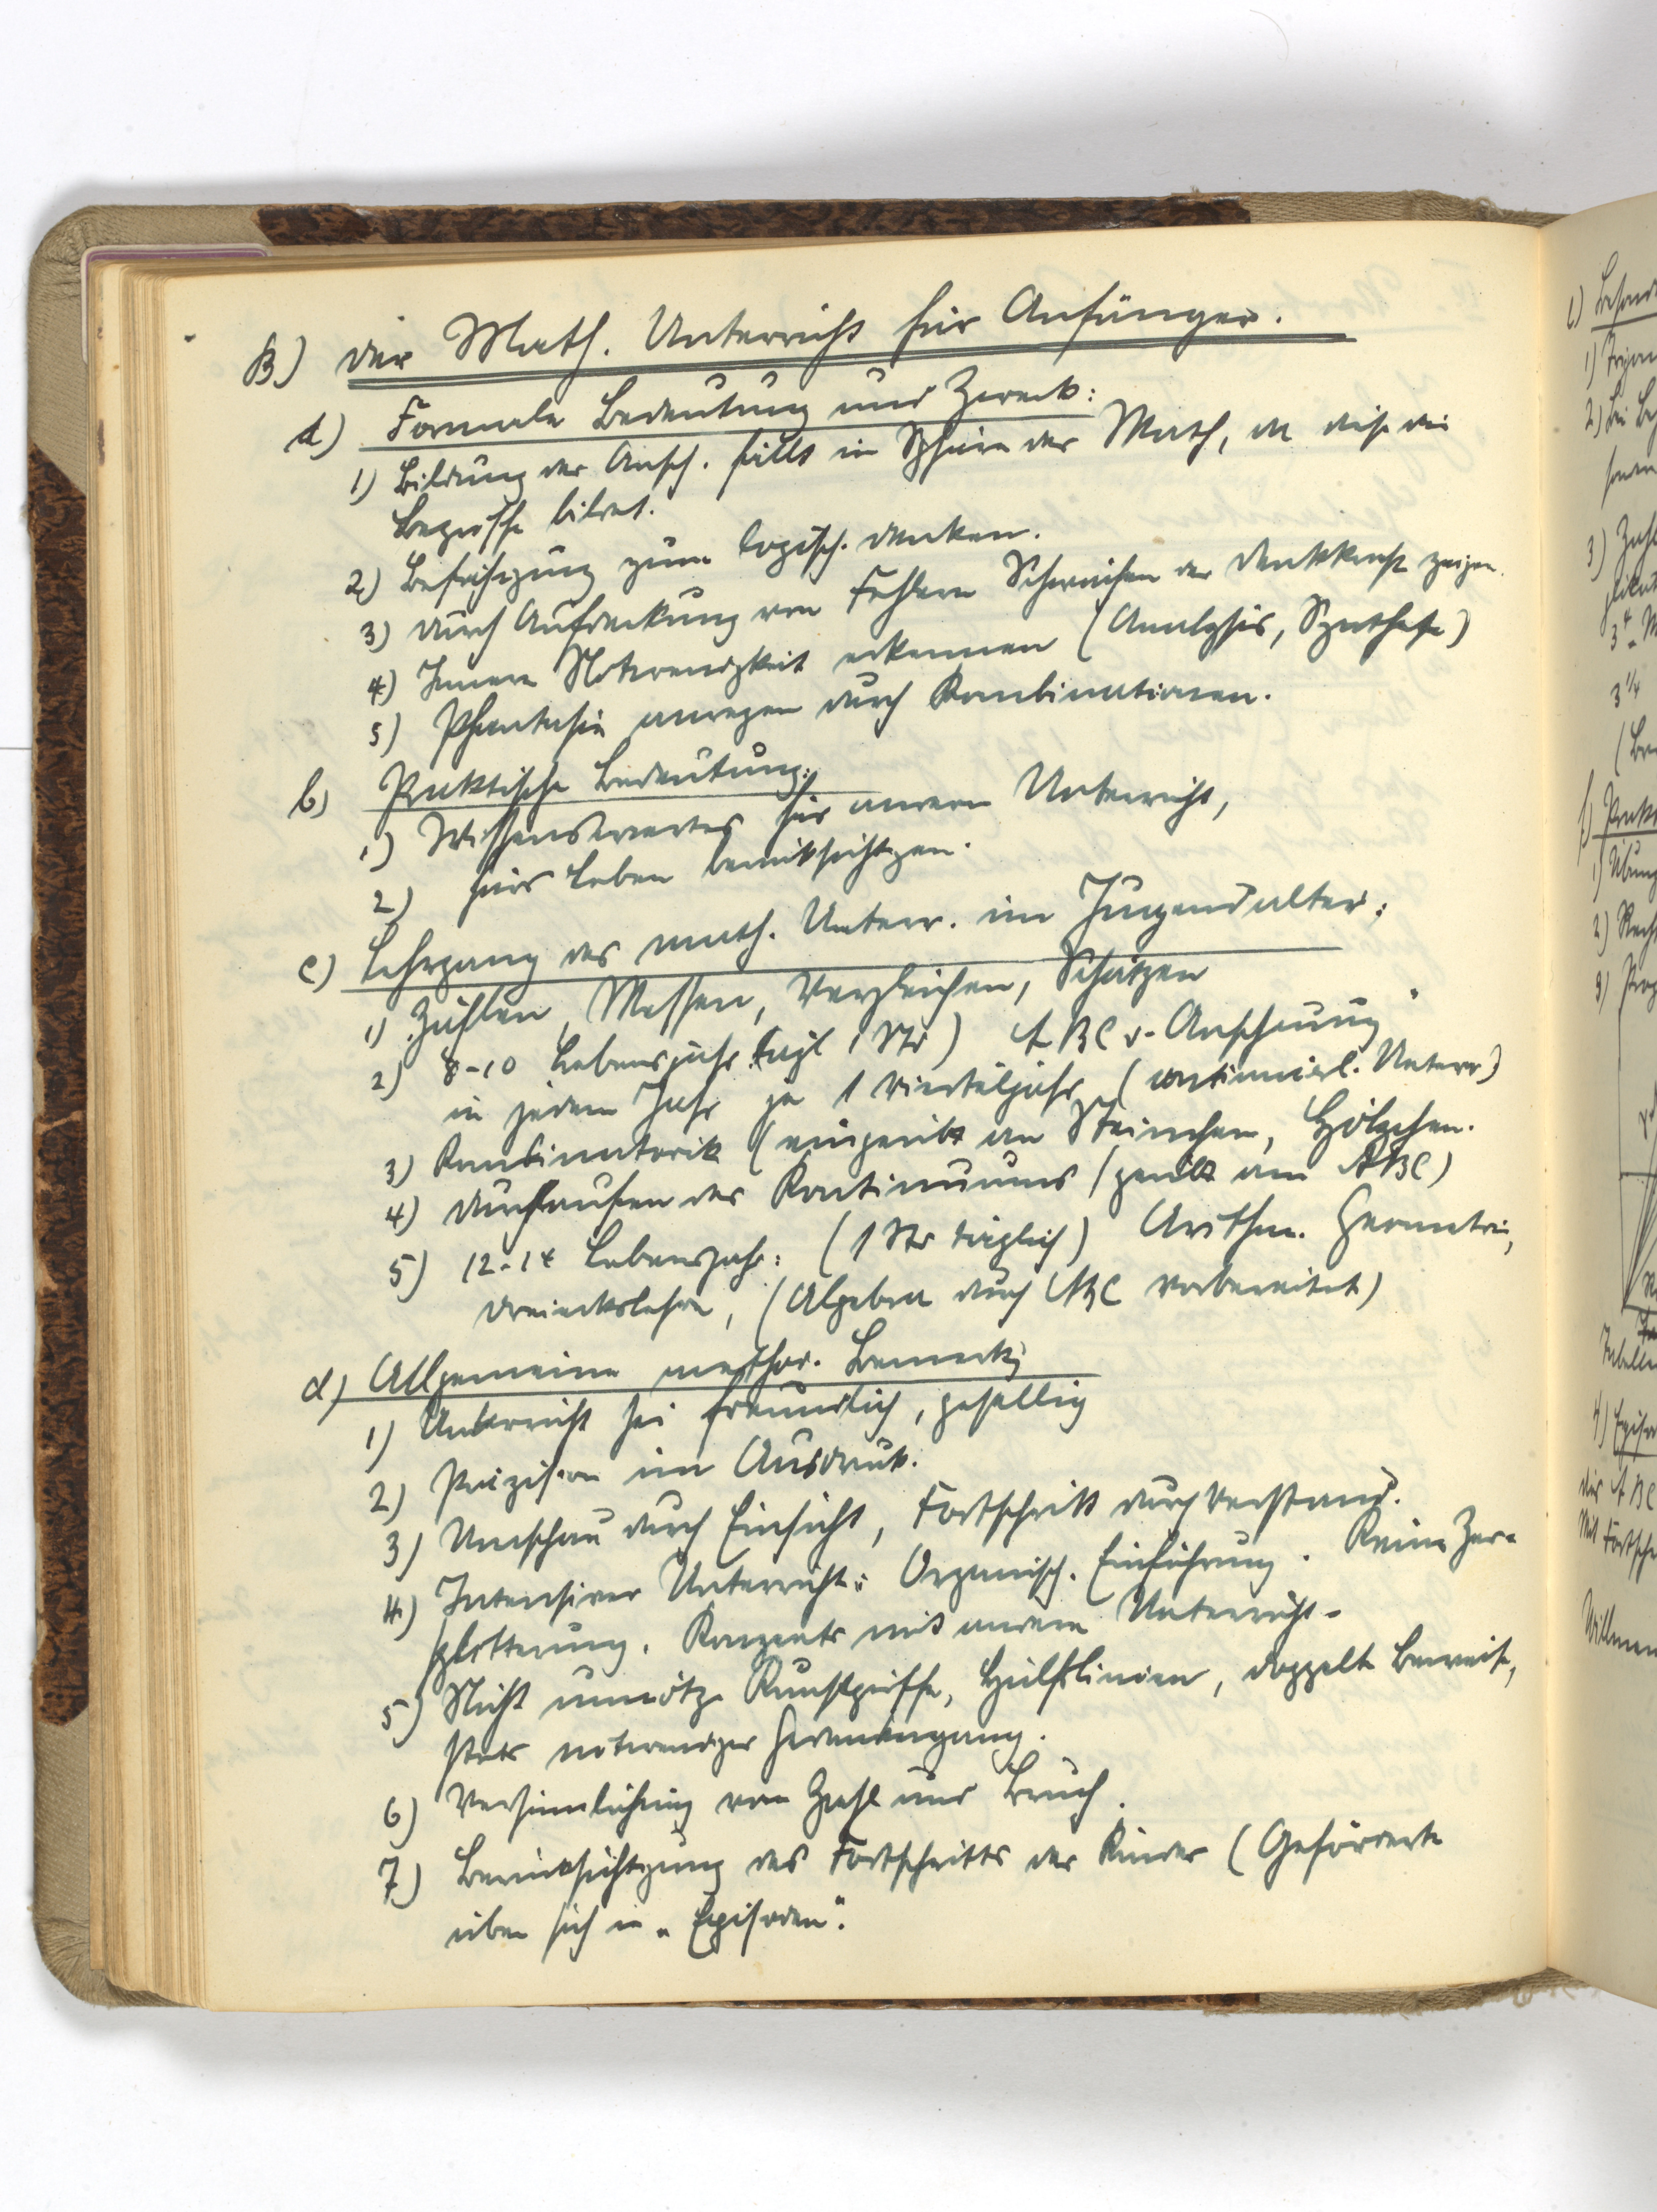 B) Der Math. Unterricht für Anfänger.
a) Formale Bedeutung und Zweck:
1) Bildung der Ansch. fällt in Sphäre der Math, da diese die
Begriffe bildet.
2) Befähigung zum logisch. Denken.
3) Durch Aufdeckung von Fehlern Schwächen der Denkkraft zeigen.
4) Innere Notwendigkeit erkennen (Analysis, Synthese)
5) Phantasie anregen durch Kombinationen.
b) Praktische Bedeutung:
1) Wissenswertes für anderen Unterricht,
2) fürs Leben berücksichtigen.
c) Lehrgang des math. Unterr. im Jugendalter:
1) Zählen, Messen, Vergleichen, Schätzen
2) 8-10 Lebensjahr (tägl 1 Std) ABC d. Anschauung"
in jedem Jahr je 1 Vierteljahr (continuierl. Unterr)
3) Kombinatorik (eingeübt an Steinchen, Hölzchen.
4) Durchlaufen des Kontinuums (geübt am ABC)
5) 12-14 Lebensjahr: (1 Std täglich) Arithm. Geometrie,
Dreieckslehre, (Algebra durch ABC vorbereitet)
d) Allgemeine method. Bemerkg
1) Unterricht sei freundlich, gesellig
2) Präzision im Ausdruck.
3) Umschau durch Einsicht, Fortschritt durch Verstand.
4) Intensiver Unterricht: Organisch. Einführung. Keine Zer-
splitterung. Konzentr mit anderem Unterricht.
5) Nicht unnötige Kunstgriffe, Hülfslinien, doppelte Beweise,
stets notwendiger Gedankengang.
6) Versinnlichung von Zahl und Bruch.
7) Berücksichtigung des Fortschritts der Kinder (Geförderte
üben sich in „Episoden".
1)
2)
3)